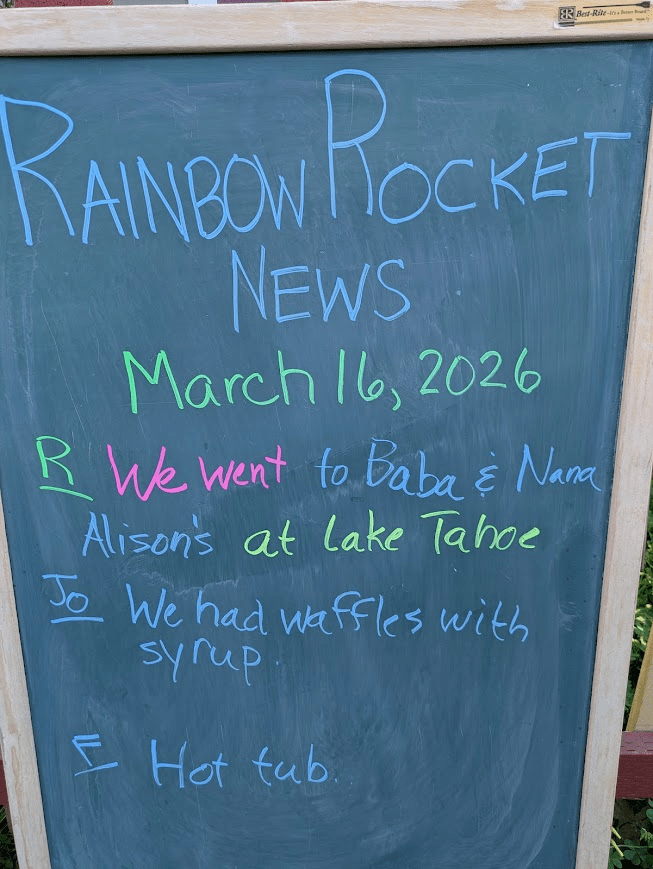 Best-Rite
RAINBOW ROCKET
NEWS
March 16, 2026
R We went to Baba & Nana
Alison's at Lake Tahoe
Jo We had waffles with
syrup.
F Hot tub.